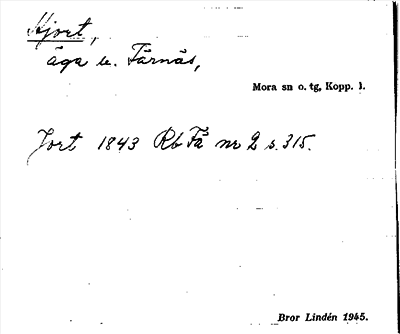 Hjort,
äga u. Färnäs,
Mora sn o. tg, Kopp. l.
Jort 1843 Rb Få nr 2 s. 315.
Bror Lindén 1945.